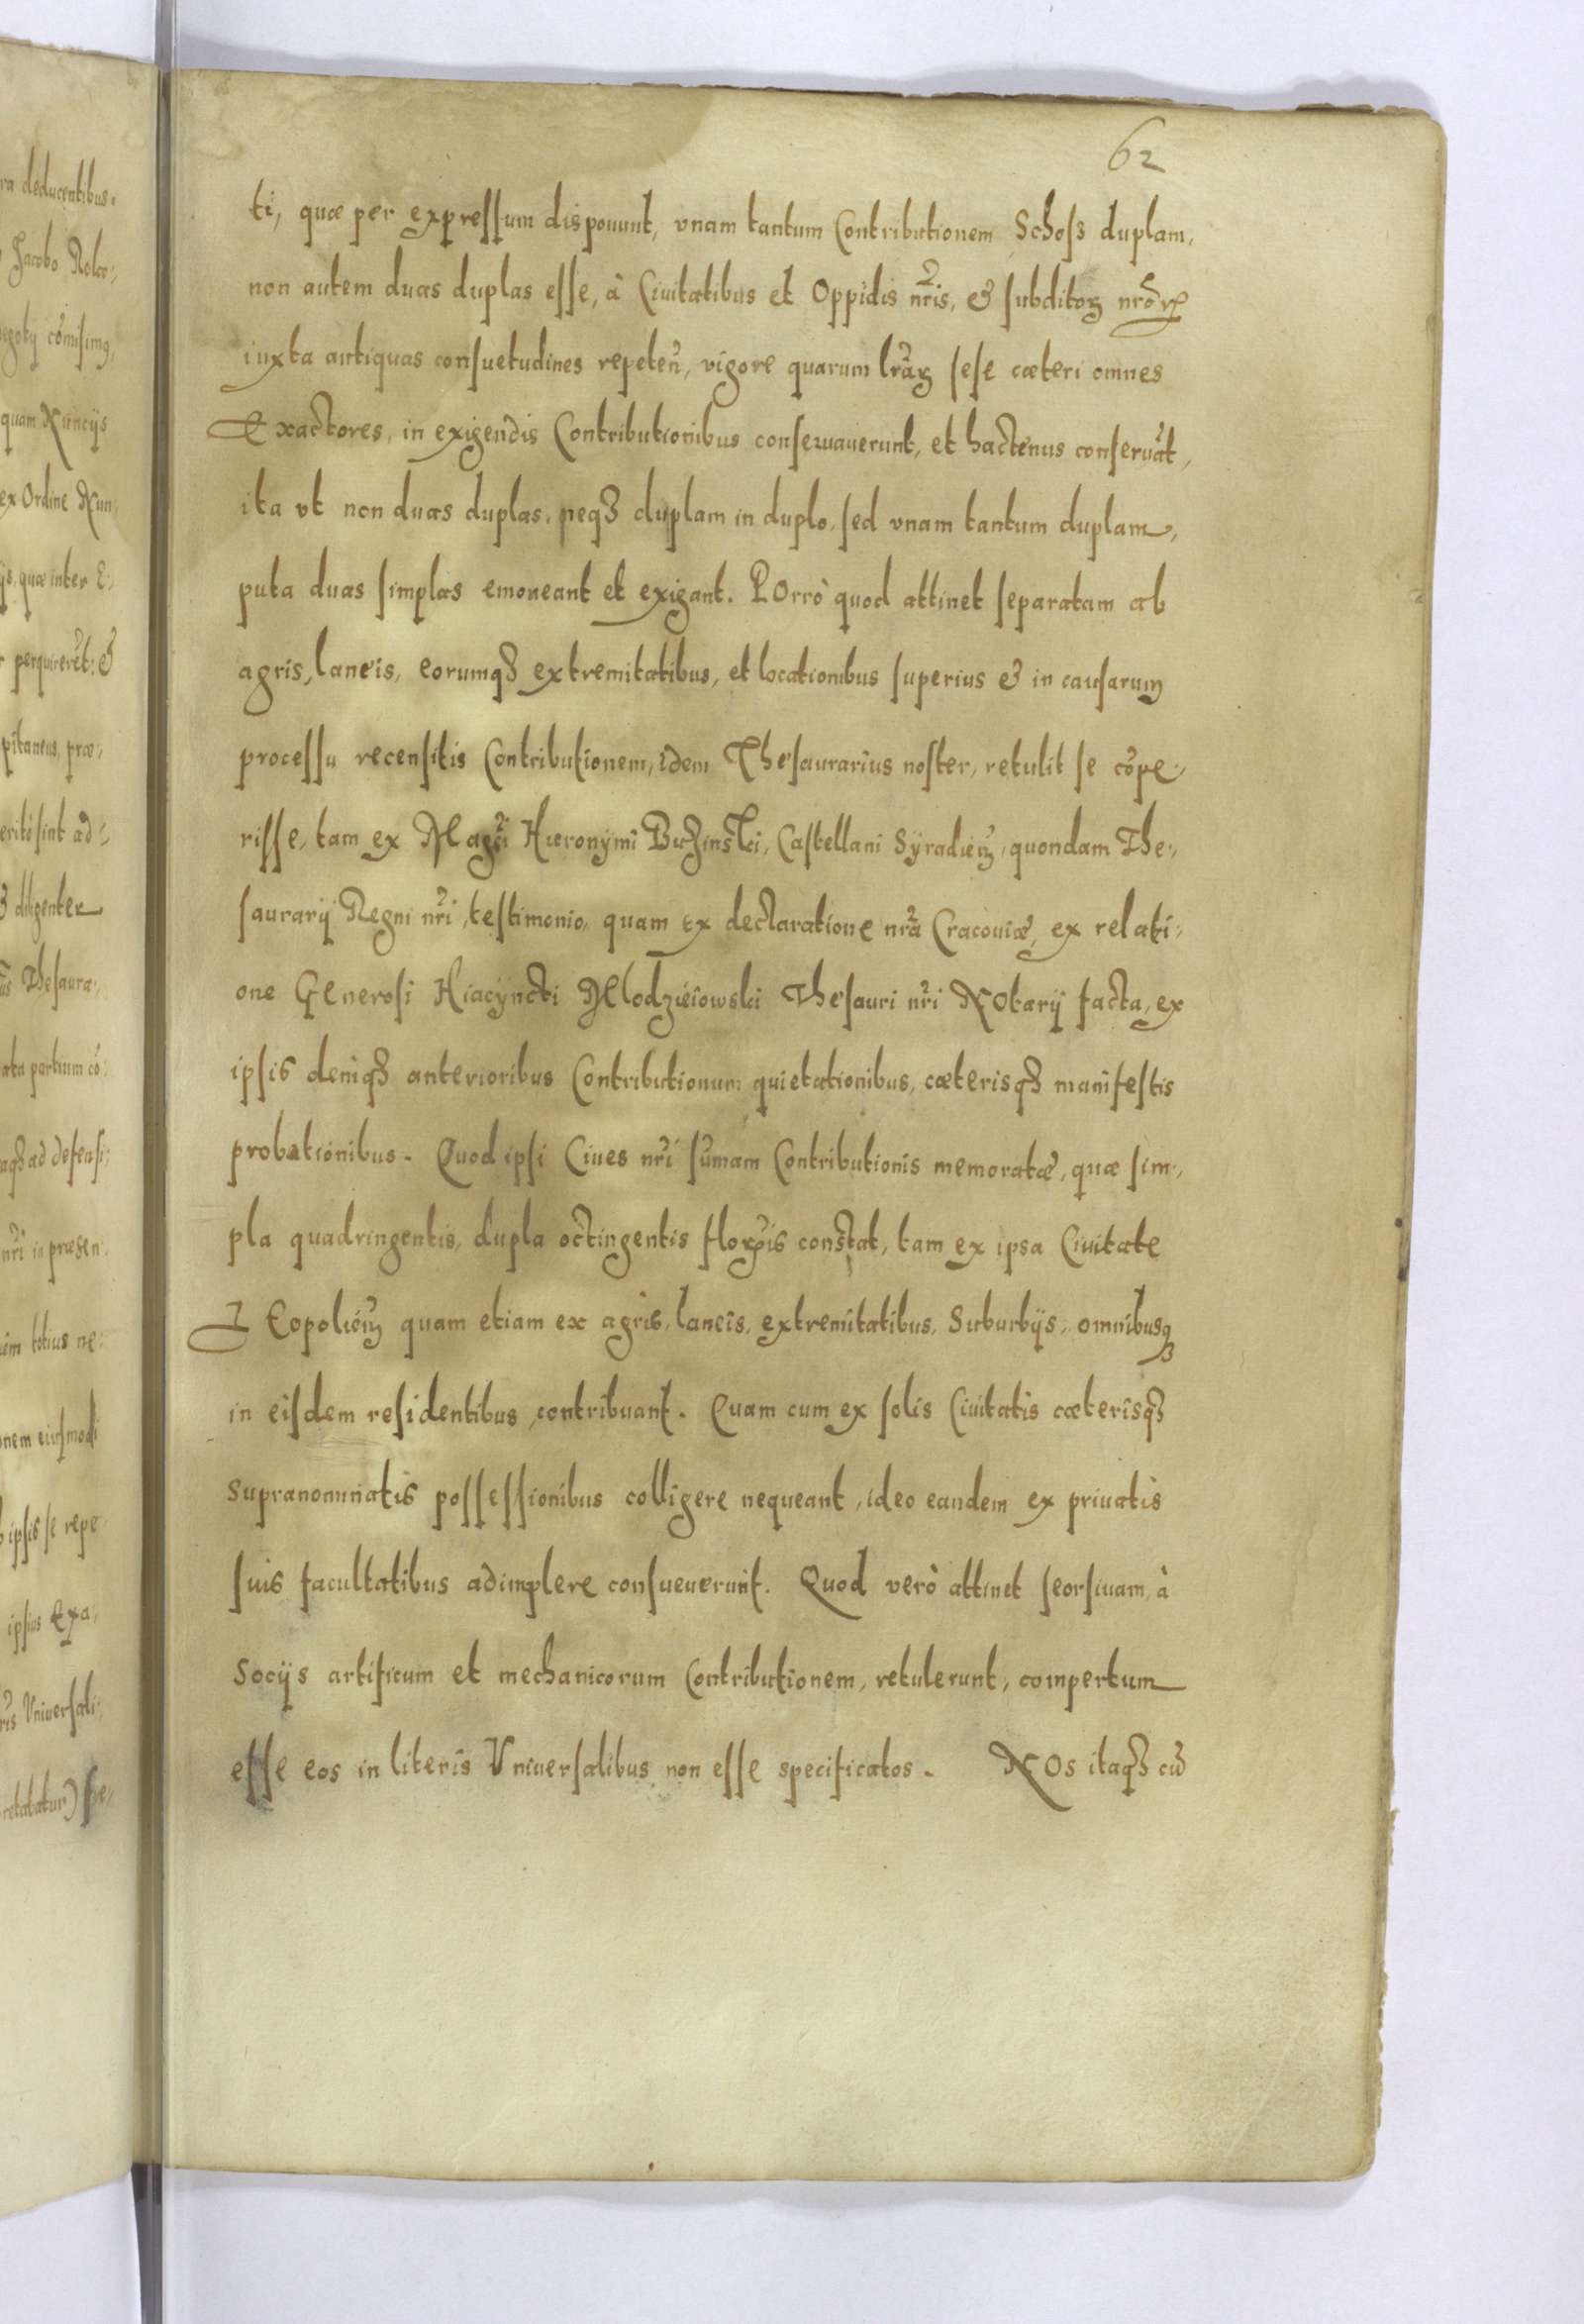 62
ti, quæ per expressum disponunt, vnam tantum Contributionem Schosz duplam,
non autem duas duplas esse, à Ciuitatibus et Oppidis nr̃is, & subditoꝝ nrõꝝ
iuxta antiquas consuetudines repeteñ, vigore quarum lrãꝝ sese cæteri omnes
Exactores, in exigendis Contributionibus conseruauerunt, et hactenus conseruãt,
ita vt non duas duplas, neqꝫ duplam in duplo, sed vnam tantum duplam,
puta duas simplas emoneant et exigant. POrrò quod attinet separatam ab
agris, laneis, eorumqꝫ extremitatibus, et locationibus superius & in causarum
processu recensitis Contributionem, idem Thesaurarius noster, retulit se cõpe:,
risse, tam ex Magci Hieronymi Buzinski, Castellani Syradieñ, quondam The:,
saurarij Regni nr̃i, testimonio, quam ex declaratione nrã Cracouiæ, ex relati:,
one Generosi Hiacyncti Mlodzieiowski Thesauri nr̃i NOtarij facta, ex
ipsis deniqꝫ anterioribus Contributionum quietationibus, cæterisqꝫ manifestis
probationibus. Quod ipsi Ciues nr̃i sum̃am Contributionis memoratæ, quæ sim:,
pla quadringentis, dupla octingentis florenis constat, tam ex ipsa Ciuitate
LEopolień quam etiam ex agris, laneis, extremitatibus, Suburbijs, omnibusqꝫ
in eisdem residentibus, contribuant. Quam cum ex solis Ciuitatis cæterisqꝫ
supranominatis possessionibus colligere nequeant, ideo eandem ex priuatis
suis facultatibus adimplere consueuerunt. Quod verò attinet seorsiuam, à
Socijs artificum et mechanicorum Contributionem, retulerunt, compertum
esse eos in literis Vniuersalibus non esse specificatos. NOs itaqꝫ cũ